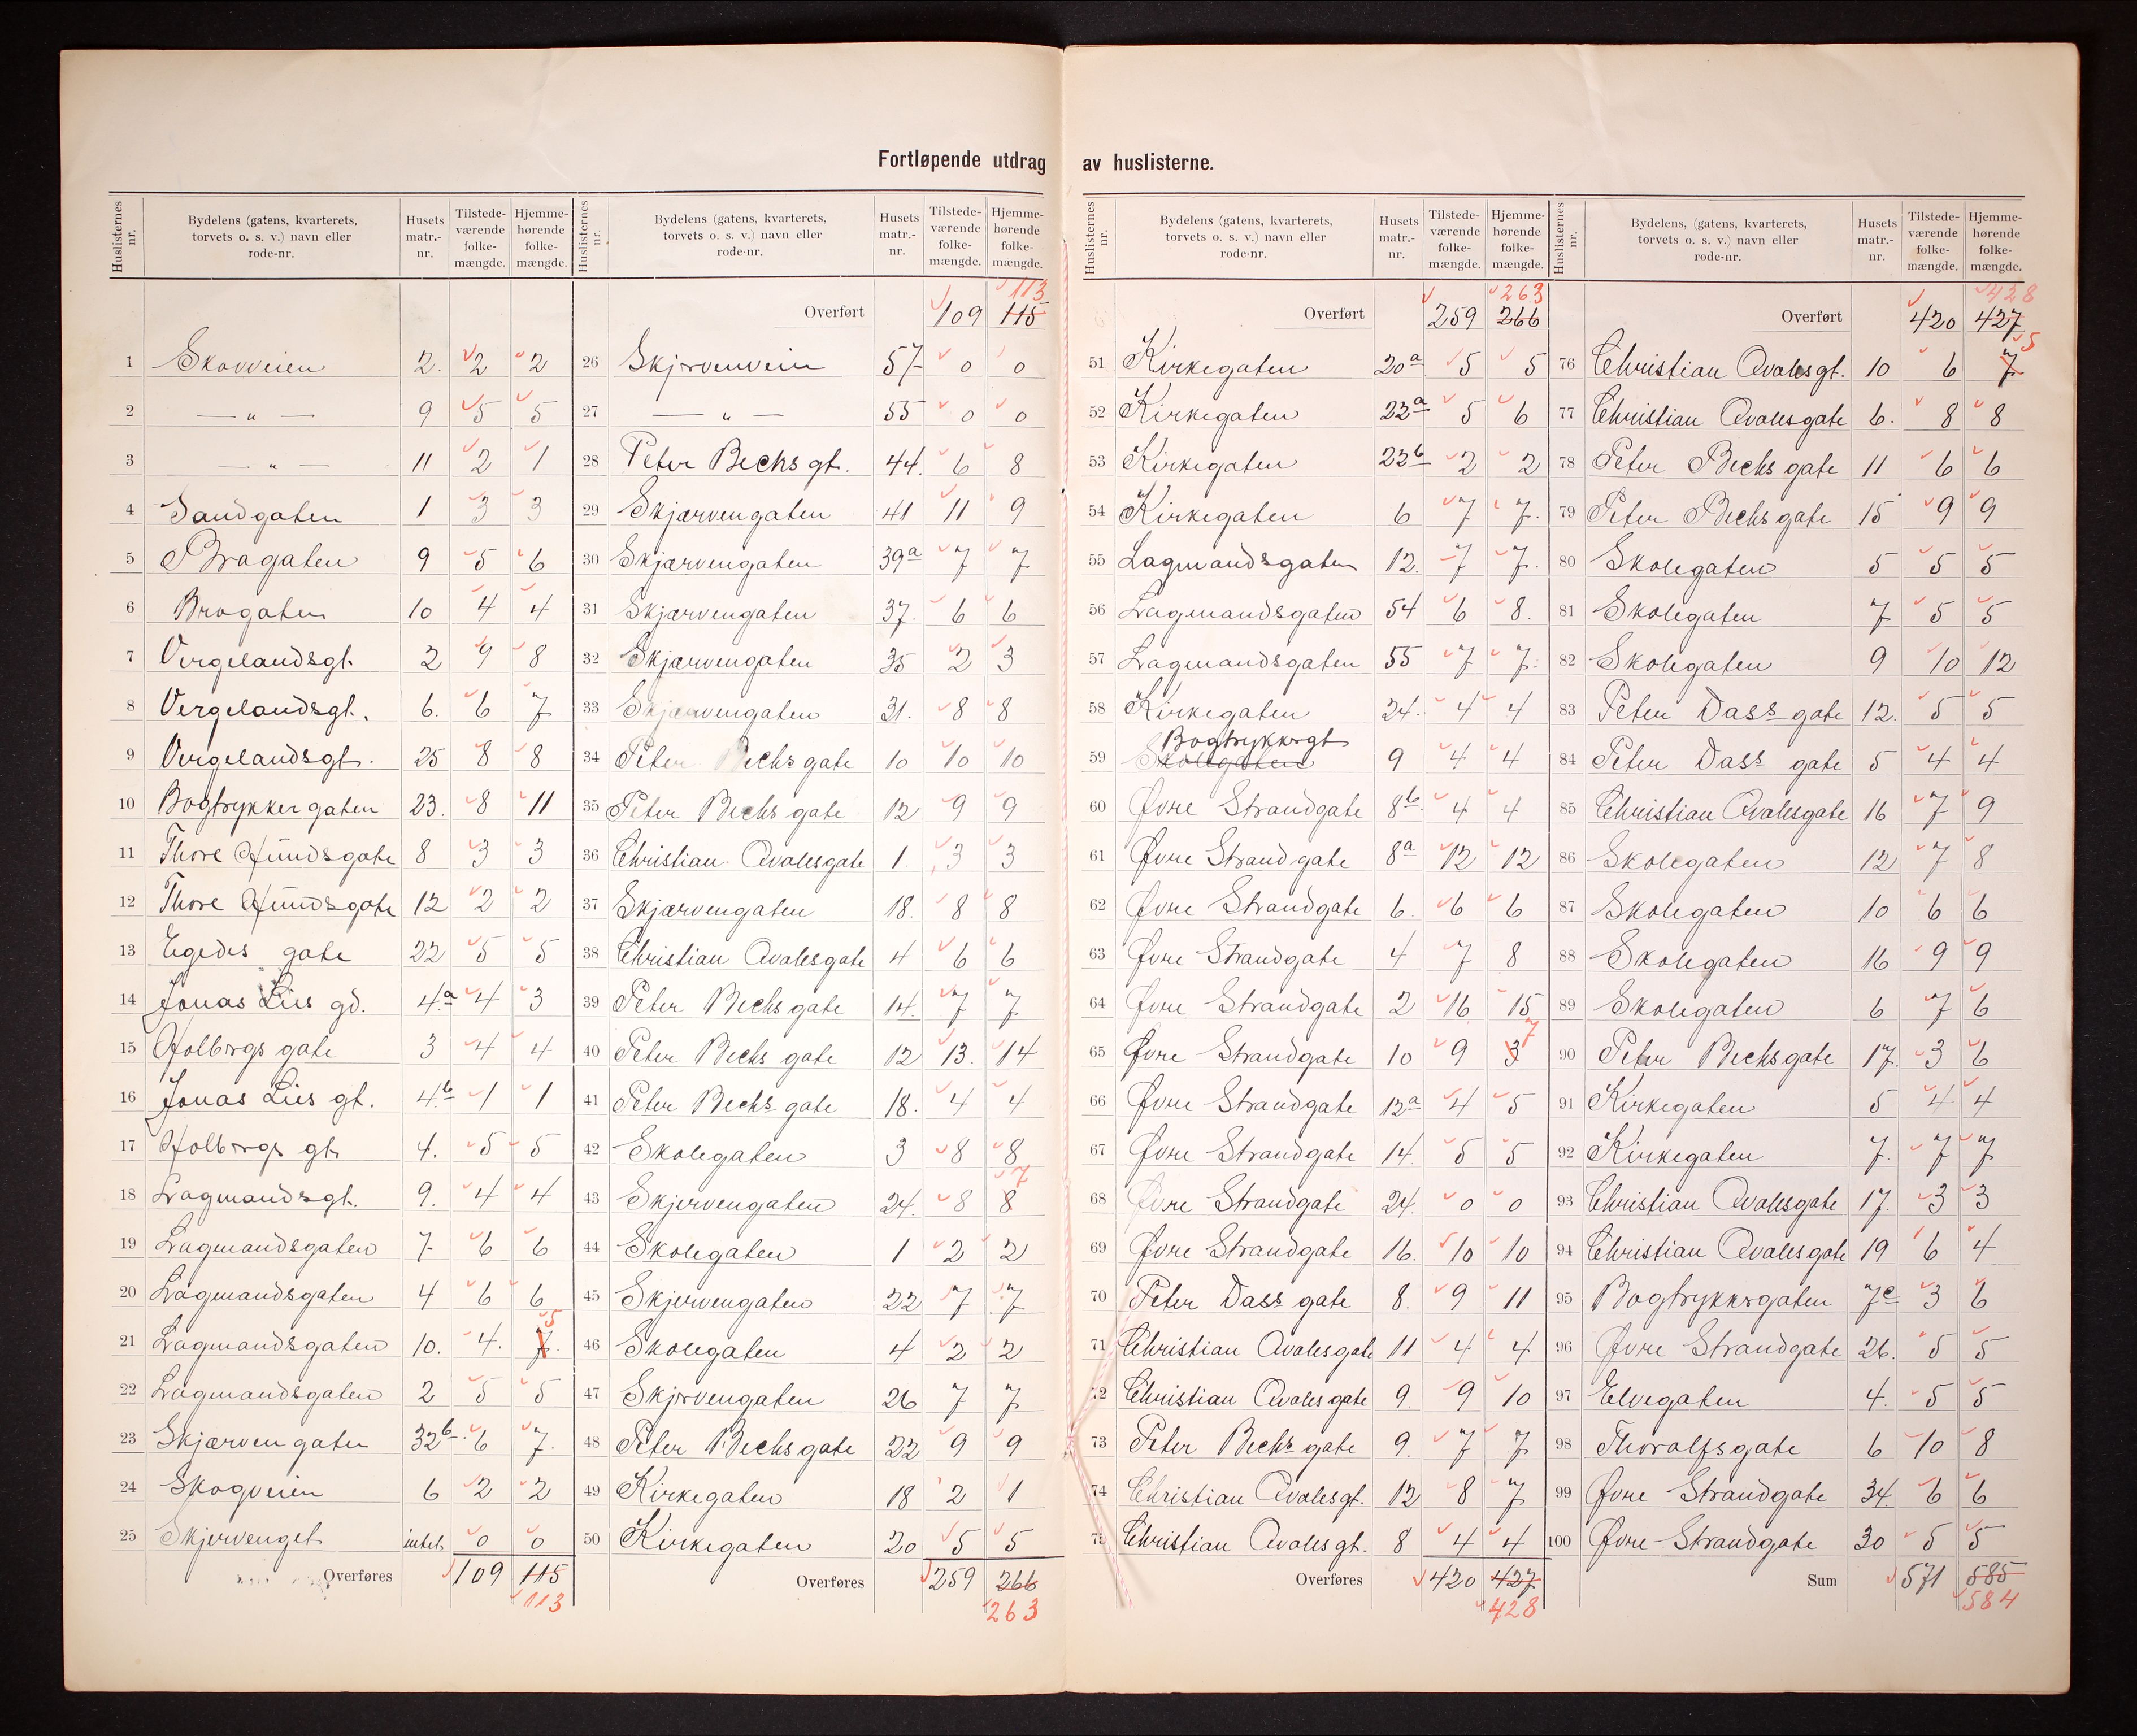 Fortløpende utdrag av huslisterne.
Huslisternes nr. | Bydelens (gatens, kvarterets, torvets o. s. v.) navn eller rode-nr. | Husets matr.-nr. | Tilstede-værende folke-mængde. | Hjemme-hørende folke-mængde.
1 Skovveien 2. 2 2
2 — " — 9 5 5
3 — " — 11 2 1
4 Sandgaten 1 3 3
5 Bragaten 9 5 6
6 Bragaten 10 4 4
7 Vergelandsgt. 2 9 8
8 Vergelandsgt. 6. 6 7
9 Vergelandsgt. 25 8 8
10 Bogtrykker gaten 23. 8 11
11 Thore Hundsgate 8 3 3
12 Thore Hundsgate 12 2 2
13 Egedes gate 22 5 5
14 Jonas Lies gd. 4a 4 3
15 Holbergs gate 3 4 4
16 Jonas Lies gt. 4b 1 1
17 Holbergs gt 4. 5 5
18 Lagmandsgt. 9. 4 4
19 Lagmandsgaten 7 6 6
20 Lagmandsgaten 4 6 6
21 Lagmandsgaten 10. 4. 7. 5
22 Lagmandsgaten 2 5 5
23 Skjærven gaten 32b 6 7.
24 Skogveien 6 2 2
25 Skjervenget intet 0 0
Overføres 109 115
113
Huslisternes nr. | Bydelens (gatens, kvarterets, torvets o. s. v.) navn eller rode-nr. | Husets matr.-nr. | Tilstede-værende folke-mængde. | Hjemme-hørende folke-mængde.
113
Overført 109 115
26 Skjervenvein 57 0 0
27 — " — 55 0 0
28 Peter Bechs gt. 44. 6 8
29 Skjærvengaten 41 11 9
30 Skjærvengaten 39a 7 7
31 Skjærvengaten 37. 6 6
32 Skjærvengaten 35 2 3
33 Skjærvengaten 31. 8 8
34 Peter Bechs gate 10 10 10
35 Peter Bechs gate 12 9 9
36 Christian Qvalesgate 1. 3 3
37 Skjærvengaten 18. 8 8
38 Christian Qvalesgate 4 6 6
39 Peter Bechs gate 14. 7 7
40 Peter Bechs gate 12 13. 14
41 Peter Bechs gate 18. 4 4
42 Skolegaten 3 8 8
43 Skjervengaten 24. 8 8 7
44 Skolegaten 1 2 2
45 Skjervengaten 22 7 7
46 Skolegaten 4 2 2
47 Skjervengaten 26 7 7
48 Peter Bechs gate 22 9 9
49 Kirkegaten 18 2 1
50 Kirkegaten 20 5 5
Overføres 259 266
263
Huslisternes nr. | Bydelens (gatens, kvarterets, torvets o. s. v.) navn eller rode-nr. | Husets matr.-nr. | Tilstede-værende folke-mængde. | Hjemme-hørende folke-mængde.
263
Overført 259 266
51 Kirkegaten 20a 5 5
52 Kirkegaten 22a 5 6
53 Kirkegaten 22b 2 2
54 Kirkegaten 6 7 7.
55 Lagmandsgaten 12. 7 7.
56 Lagmandsgaten 54 6 8.
57 Lagmandsgaten 55 7 7.
58 Kirkegaten 24. 4 4
Bogtrykkergt
59 Skolegaten 9 4 4
60 Øvre Strandgate 8b 4 4
61 Øvre Strandgate 8a 12 12
62 Øvre Strandgate 6. 6 6
63 Øvre Strandgate 4 7 8
64 Øvre Strandgate 2 16 15
65 Øvre Strandgate 10 9 3 7
66 Øvre Strandgate 12a 4 5
67 Øvre Strandgate 14. 5 5
68 Øvre Strandgate 24. 0 0
69 Øvre Strandgate 16. 10 10
70 Peter Dass gate 8. 9 11
71 Christian Qvalesgate 11 4 4
72 Christian Qvales gate 9. 9 10
73 Peter Bechs gate 9. 7 7
74 Christian Qvalesgt. 12 8 7
75 Christian Qvalesgt. 8 4 4
Overføres 420 427
428
Huslisternes nr. | Bydelens, (gatens, kvarterets, torvets o. s. v.) navn eller rode-nr. | Husets matr.-nr. | Tilstede-værende folke-mængde. | Hjemme-hørende folke-mængde.
428
Overført 420 427
76 Christian Qvalesgt. 10 6 7 5
77 Christian Qvalesgate 6. 8 8
78 Peter Bechs gate 11 6 6
79 Peter Bechs gate 15 9 9
80 Skolegaten 5 5 5
81 Skolegaten 7 5 5
82 Skolegaten 9 10 12
83 Peter Dass gate 12. 5 5
84 Peter Dass gate 5 4 4
85 Christian Qvalesgate 16 7 9
86 Skolegaten 12 7 8
87 Skolegaten 10 6 6
88 Skolegaten 16 9 9
89 Skolegaten 6 7 6
90 Peter Bechsgate 17. 3 6
91 Kirkegaten 5 4 4
92 Kirkegaten 7. 7 7
93 Christian Qvalesgate 17. 3 3
94 Christian Qvalesgate 19 6 4
95 Bogtrykkergaten 7c 3 6
96 Øvre Strandgate 26. 5 5
97 Elvegaten 4. 5 5
98 Thoralfsgate 6 10 8
99 Øvre Strandgate 34 6 6
100 Øvre Strandgate 30 5 5
Sum 571 585
584